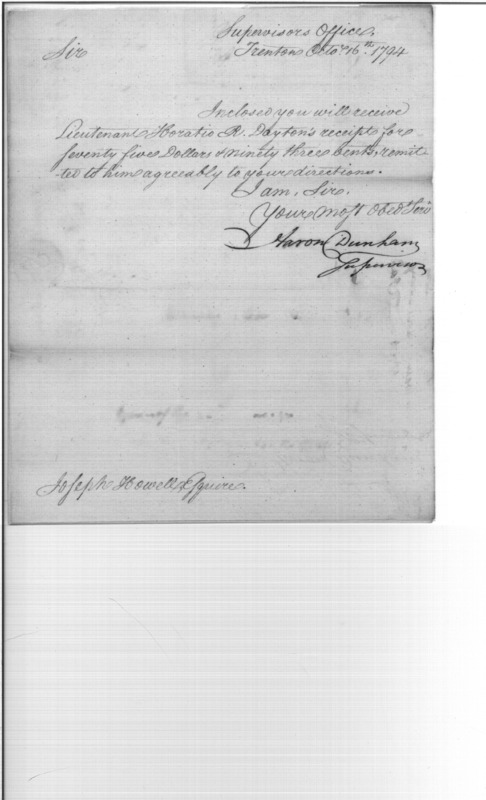 Supervisors Office,
Trenton Octo. 16th. 1794
Sir
Inclosed you will receive
Lieutenant Horatio R. Dayton's receipt for
seventy five Dollars & ninety three Cents, remit-
ted to him agreeably to your directions.
I am, Sir,
Your most Obed Serv
Aaron Dunham,
Supervisor
Joseph Howell Esquire.